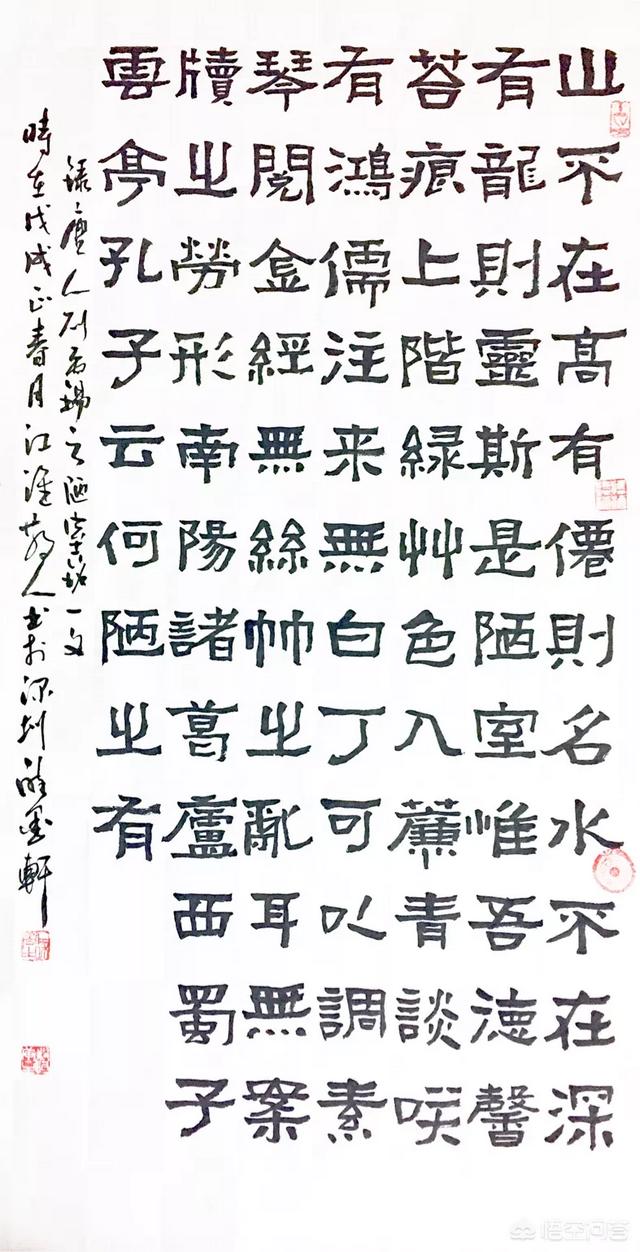 山不在髙有僊則名水不在深
有龍則靈斯是陋室惟吾德馨
苔痕上階緑艸色入薕青談咲
有鴻儒注来無白丁可以調素
琴閱金經無絲竹之亂耳無案
牘之勞形南陽諸葛廬西蜀子
雲亭孔子云何陋之有
録唐人刘禹锡之陋室铭一文
時在戊戌正春月江淮散人书於深圳墨軒
悟空问答